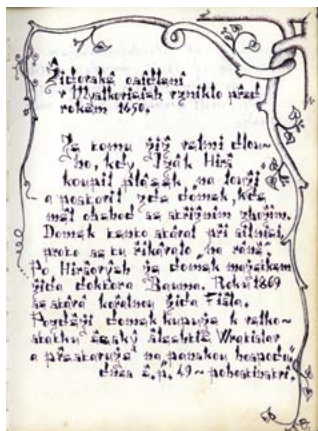 Židovské osídlení
v Myslkovicích vzniklo před
rokem 1650.
Je tomu již velmi dlou-
ho, kdy Izák Hirš
koupil plácek „na louži“
a postavil zde domek, kde
měl obchod se střižním zbožím.
Domek tento stával při silnici,
proto se tu říkávalo „na ráně“.
Po Hiršových je domek majetkem
žida doktora Bauma. Roku 1869
se stává kořalnou žida Fišla.
Později domek kupuje k velko-
statku český šlechtic Wratislav
a přestavuje na panskou hospodu,
dnes č.p. 49 ~ pohostinství.